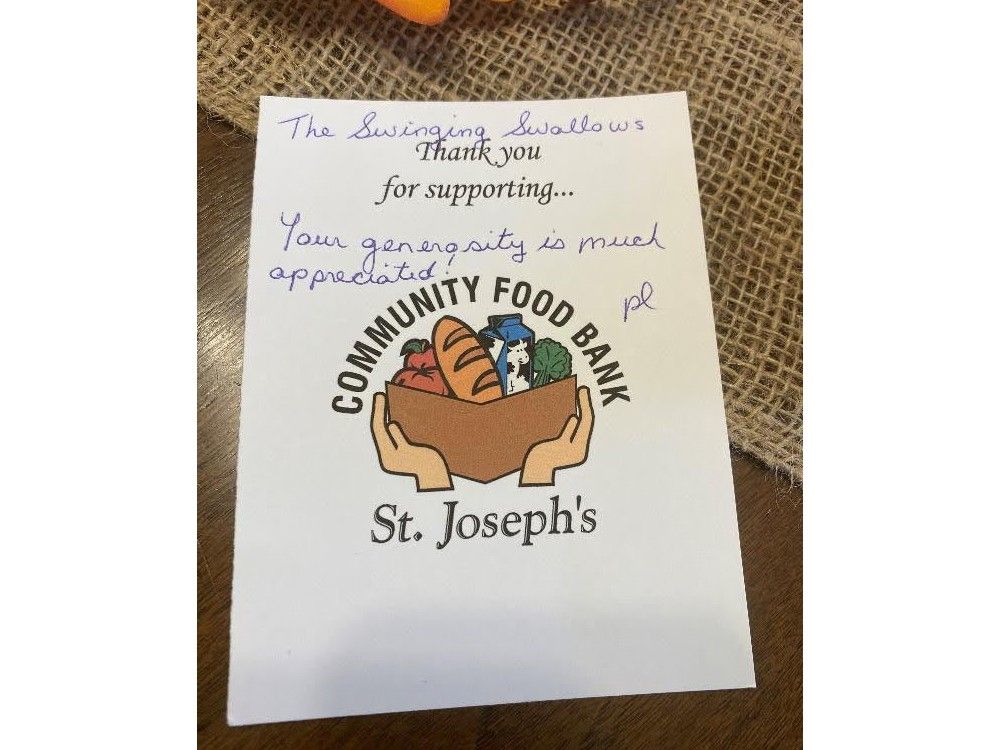 The Swinging Swallows
Thank you
for supporting...
Your generosity is much
appreciated!
pl
COMMUNITY FOOD BANK
St. Joseph's